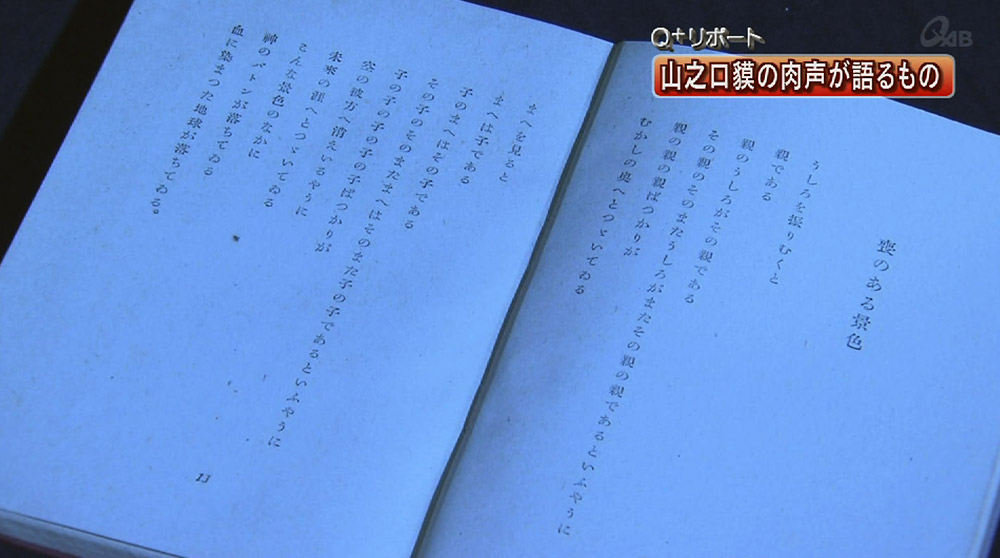 Q+リポート
山之口貘の肉声が語るもの
QAB
喪のある景色
うしろを振りむくと
親である
親のうしろがその親である
その親のそのまたうしろがまたその親の親であるといふやうに
親の親の親ばつかりが
むかしの奥へとつゞいてゐる
まへを見ると
まへは子である
子のまへはその子である
その子のそのまたまへはそのまた子の子であるといふやうに
子の子の子の子の子ばつかりが
空の彼方へ消えいるやうに
未来の涯へとつゞいてゐる
こんな景色のなかに
神のバトンが落ちてゐる
血に染まつた地球が落ちてゐる。
13